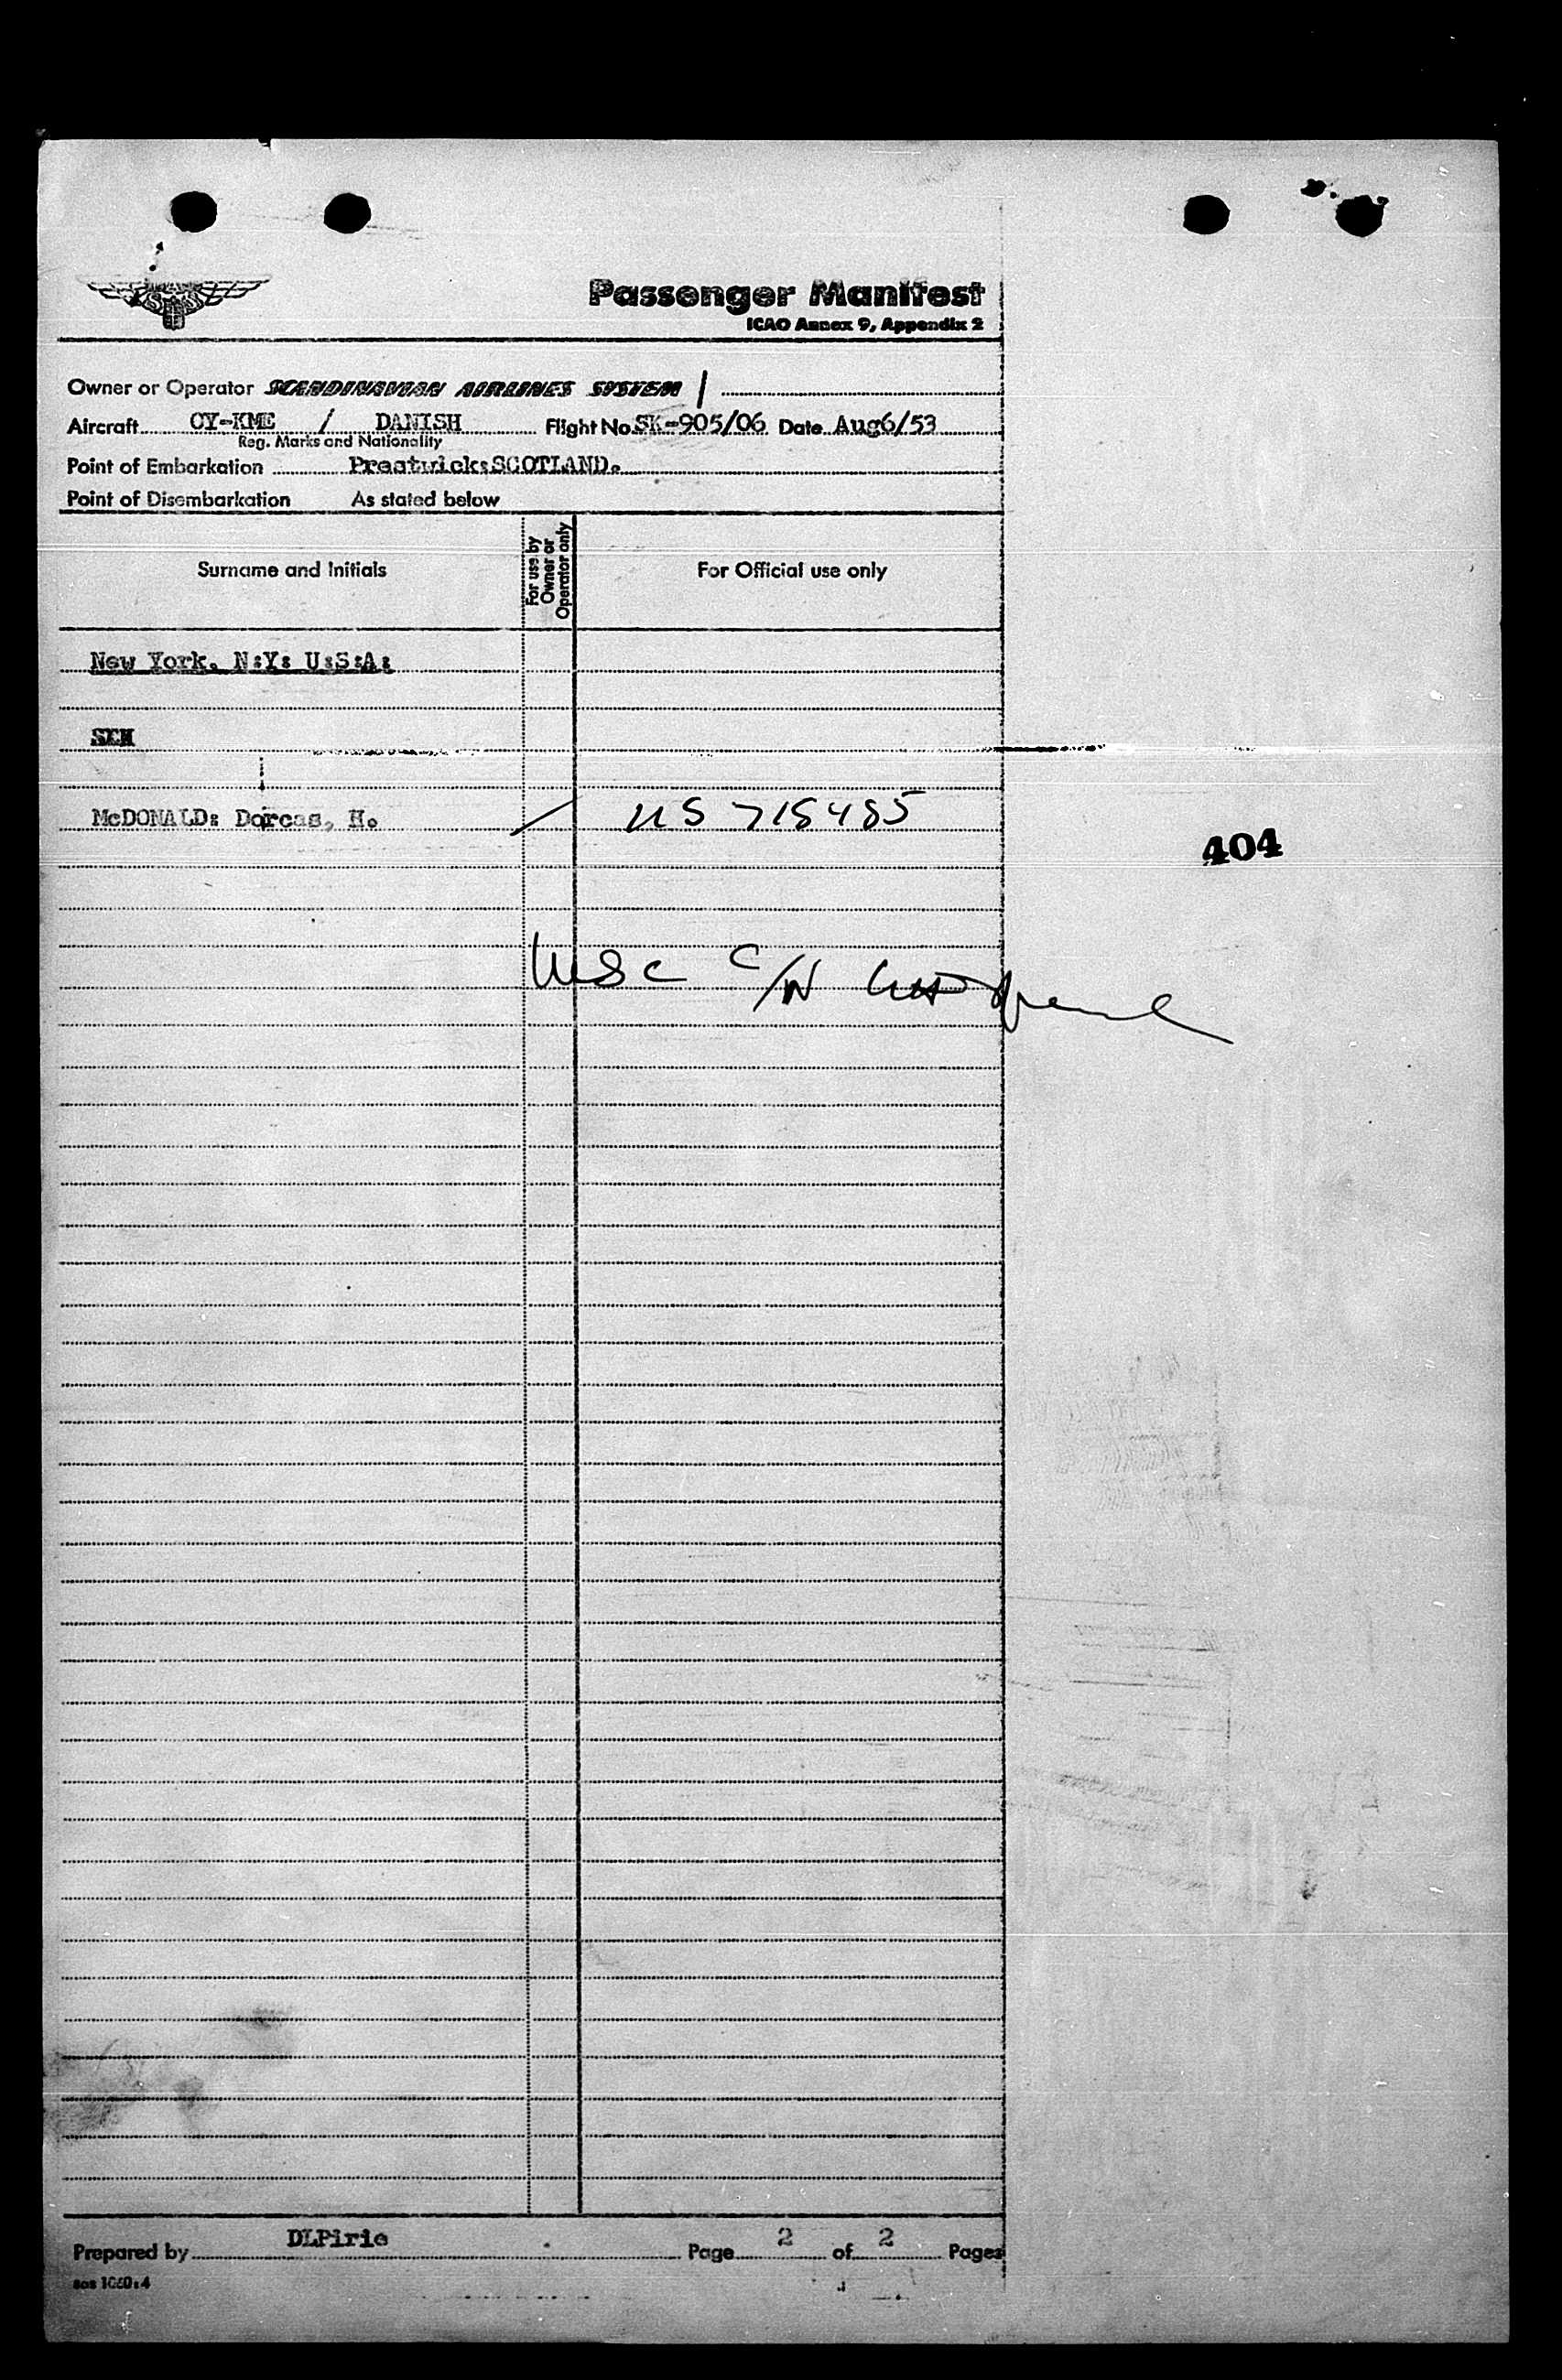 SAS
Passenger Manifest
ICAO Annex 9, Appendix 2
Owner or Operator SCANDINAVIAN AIRLINES SYSTEM /
Aircraft OY-KME / DANISH Flight No. SK-905/06 Date Aug6/53
Reg. Marks and Nationality
Point of Embarkation Prestwick:SCOTLAND.
Point of Disembarkation As stated below
Surname and Initials
For use by Owner or Operator only
For Official use only
New York. N:Y: U:S:A:
McDONALD: Dorcas, H.
US 715485
404
USC C/N
Prepared by DLPirie Page 2 of 2 Pages
sas 1060:4